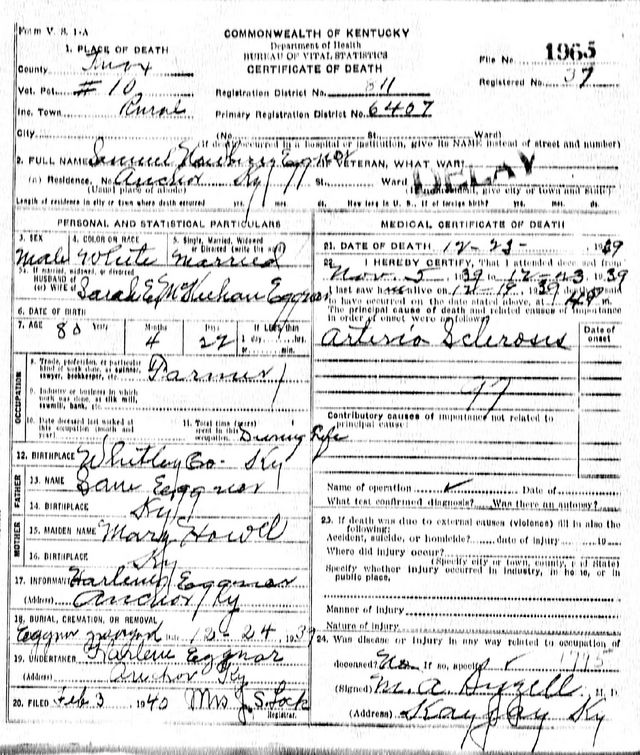 Form V. S. 1-A
COMMONWEALTH OF KENTUCKY
Department of Health
BUREAU OF VITAL STATISTICS
CERTIFICATE OF DEATH
File No. 1965
Registered No. 37
1. PLACE OF DEATH
County Knox
Vot. Pct. #10
Inc. Town Rural
City
Registration District No. 811
Primary Registration District No. 6407
(No. St. Ward)
(If death occurred in a hospital or institution, give its NAME instead of street and number)
2. FULL NAME Samuel Eggner IF VETERAN, WHAT WAR?
DELAY
(a) Residence. No. Anchor Ky St. Ward
(Usual place of abode) give city or town and State)
Length of residence in city or town where death occurred yrs. mos. ds. How long in U. S., if of foreign birth? yrs. mos. ds.
PERSONAL AND STATISTICAL PARTICULARS
3. SEX 4. COLOR OR RACE 5. Single, Married, Widowed or Divorced (write the word)
Male White Married
5a. If married, widowed, or divorced
HUSBAND of
(or) WIFE of Sarah E. Eggner
6. DATE OF BIRTH
7. AGE 80 Years 4 Months 22 Days If LESS than 1 day, hrs. or min.
OCCUPATION
8. Trade, profession, or particular kind of work done, as spinner, sawyer, bookkeeper, etc. Farmer
9. Industry or business in which work was done, as silk mill, sawmill, bank, etc.
10. Date deceased last worked at this occupation (month and year)
11. Total time (years) spent in this occupation During Life
12. BIRTHPLACE Whitley Co. Ky
FATHER
13. NAME Eggner
14. BIRTHPLACE Ky
MOTHER
15. MAIDEN NAME Mary Howell
16. BIRTHPLACE Ky
17. INFORMANT Eggner
(Address) Anchor Ky
18. BURIAL, CREMATION, OR REMOVAL
Eggner Date 12-24, 1939
19. UNDERTAKER Eggner
Anchor Ky
20. FILED Feb 3 1940 Mrs J. S.
Registrar.
MEDICAL CERTIFICATE OF DEATH
21. DATE OF DEATH 12-23- 1939
22. I HEREBY CERTIFY, That I attended deceased from
Nov. 5 1939 to 12-23 1939
I last saw alive on 12-19 1939 death is said
to have occurred on the date stated above, at m.
The principal cause of death and related causes of importance in order of onset were as follows:
Date of onset
Arterio Sclerosis
97
Contributory causes of importance not related to principal cause:
Name of operation Date of
What test confirmed diagnosis? Was there an autopsy?
23. If death was due to external causes (violence) fill in also the following:
Accident, suicide, or homicide? date of injury 19
Where did injury occur?
(Specify city or town, county, and State)
Specify whether injury occurred in industry, in home, or in public place.
Manner of injury
Nature of injury
24. Was disease or injury in any way related to occupation of
deceased? No If so, specify
(Signed) M. A. M. D.
(Address) Kay Jay Ky